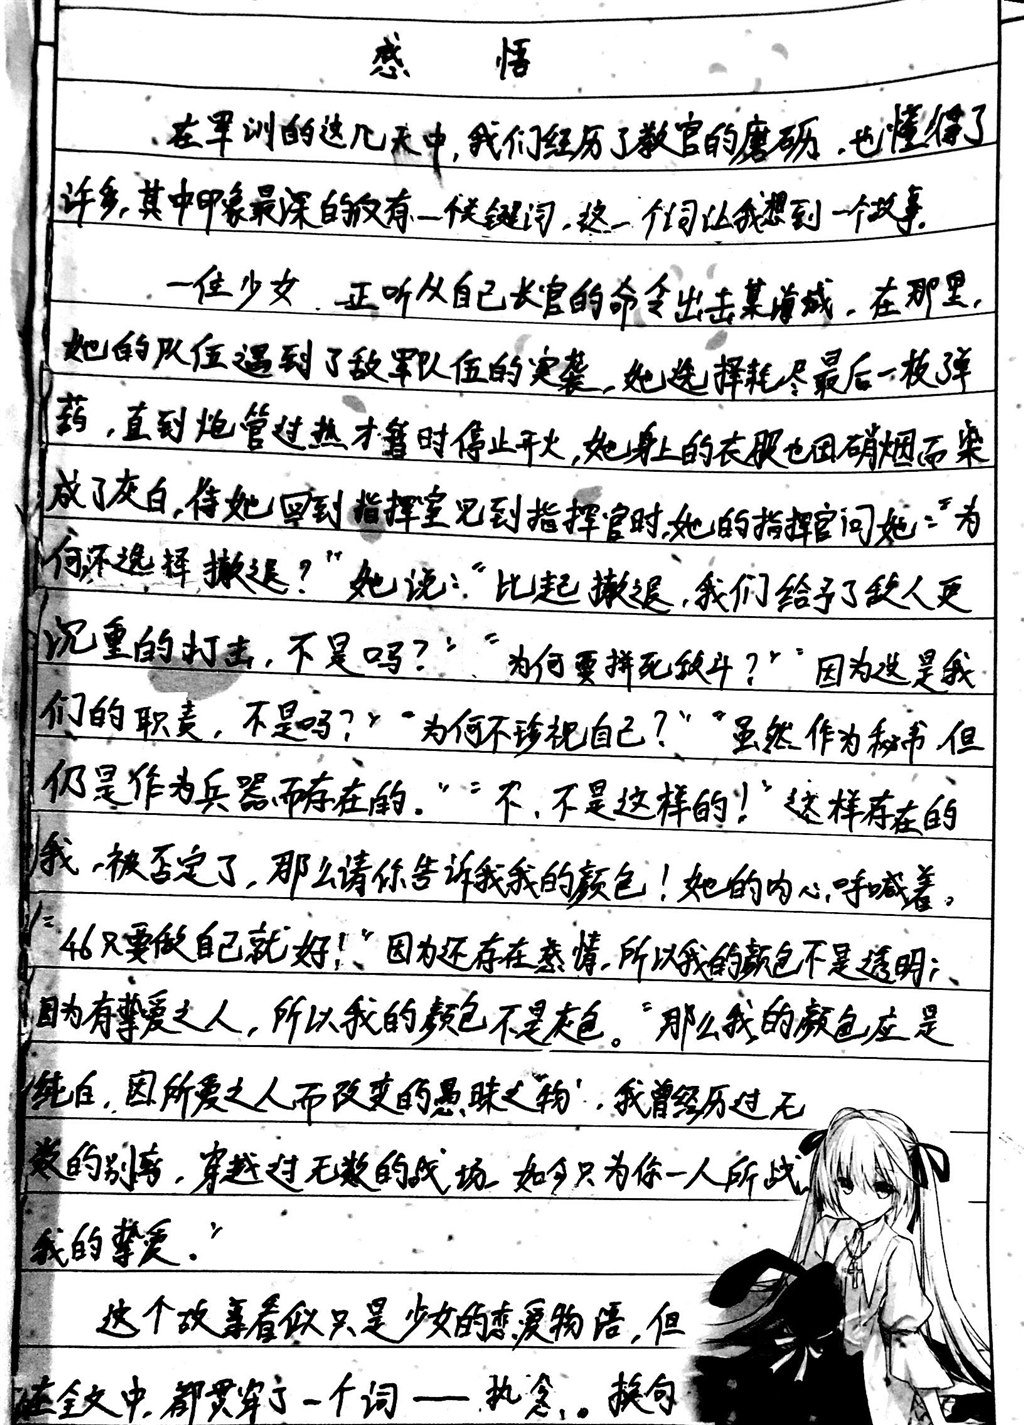 感悟
在军训的这几天中,我们经历了教官的磨砺,也懂得了
许多,其中印象最深的仅有一个关键词,这一个词让我想到一个故事.
一位少女 正听从自己长官的命令出击某海域,在那里,
她的队伍遇到了敌军队伍的突袭,她选择耗尽最后一枚弹
药,直到炮管过热才暂时停止开火,她身上的衣服也因硝烟而染
成了灰白,待她回到指挥室见到指挥官时,她的指挥官问她:“为
何不选择撤退?”她说:“比起撤退,我们给予了敌人更
沉重的打击,不是吗?”“为何要拼死战斗?”“因为这是我
们的职责,不是吗?”“为何不珍视自己?”“虽然作为秘书,但
仍是作为兵器而存在的.”“不,不是这样的!”这样存在的
我,被否定了,那么请你告诉我我的颜色!她的内心呼喊着.
“46只要做自己就好!”因为还存在感情,所以我的颜色不是透明;
因为有挚爱之人,所以我的颜色不是灰色。“那么我的颜色应是
纯白,因所爱之人而改变的愚昧之物',我曾经历过无
数的别离,穿越过无数的战场,如今只为你一人所战
我的挚爱.”
这个故事看似只是少女的恋爱物语,但
在全文中,都贯穿了一个词——执念.。换句